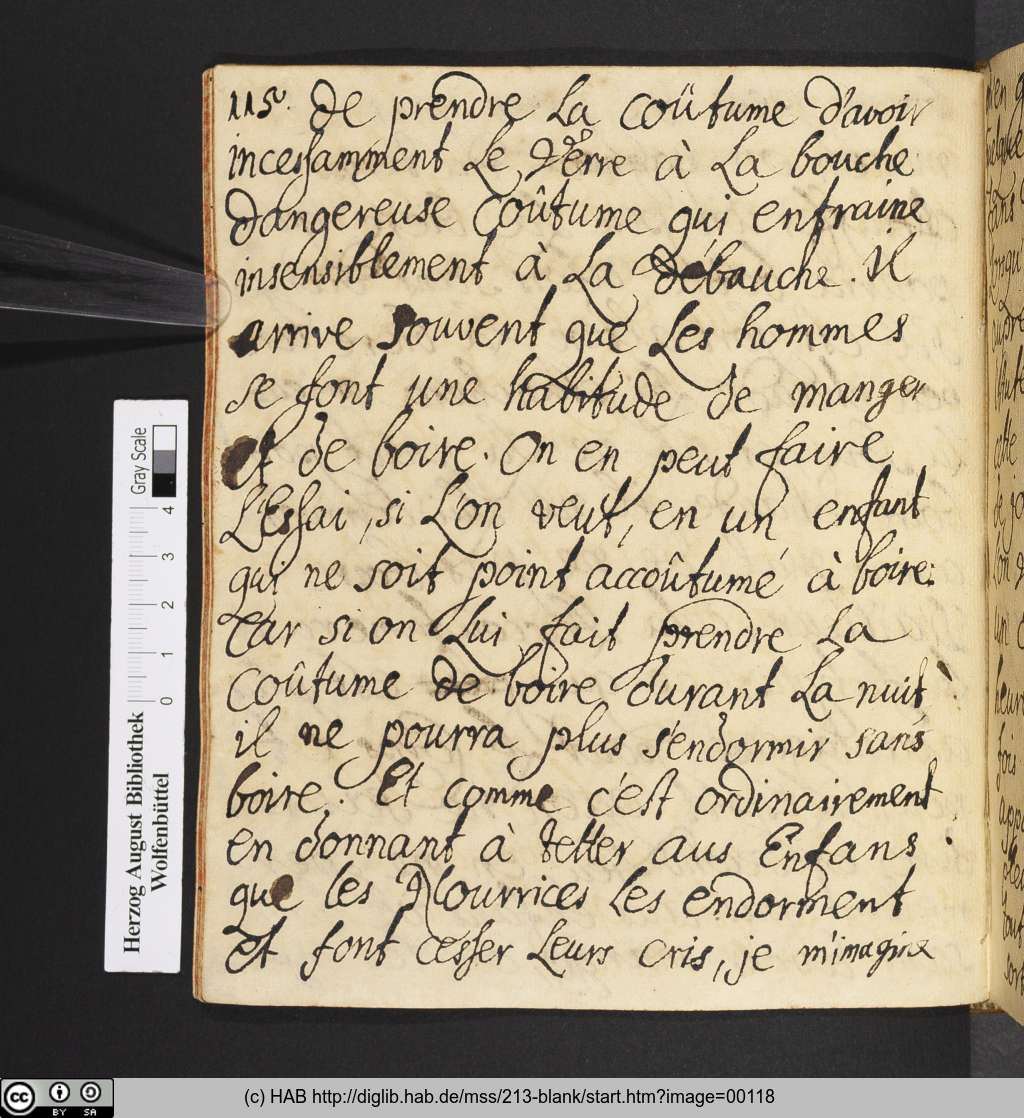 115. de prendre La coûtume d'avoir
incessamment Le Verre à La bouche
dangereuse coûtume qui entraine
insensiblement à La débauche. il
arrive souvent que Les hommes
se font une habitude de manger
et de boire. On en peut faire
L'Essai, si L'on veut, en un enfant
qui ne soit point accoûtumé à boire:
Car si on Lui fait prendre La
coûtume de boire durant La nuit
il ne pourra plus s'endormir sans
boire. Et comme c'est ordinairement
en donnant à tetter aus Enfans
que les Nourrices Les endorment
et font cesser Leurs cris, je m'imagine
Herzog August Bibliothek
Wolfenbüttel
Gray Scale
0 1 2 3 4
cc BY SA
(c) HAB http://diglib.hab.de/mss/213-blank/start.htm?image=00118